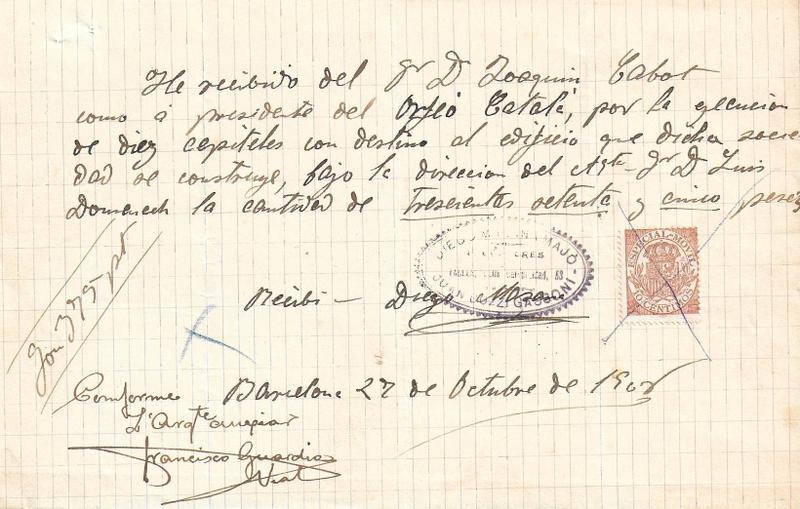 He recibido del Sr D Joaquin Cabot
como á presidente del Orfeó Catalá, por la ejecucion
de diez capiteles con destino al edificio que dicha socie-
dad se construye, bajo la direccion del Aqto Sr D Luis
Domenech la cantidad de trescientas setenta y cinco pesetas
ESPECIAL MOVIL
10 CENTIMOS
DIEGO MAJÓ
JUAN GASSONI
Son 375 pts
Recibi - Diego
Barcelona 27 de Octubre de
Conforme
L'Arqte auxiliar
Francisco Guardia
Vial